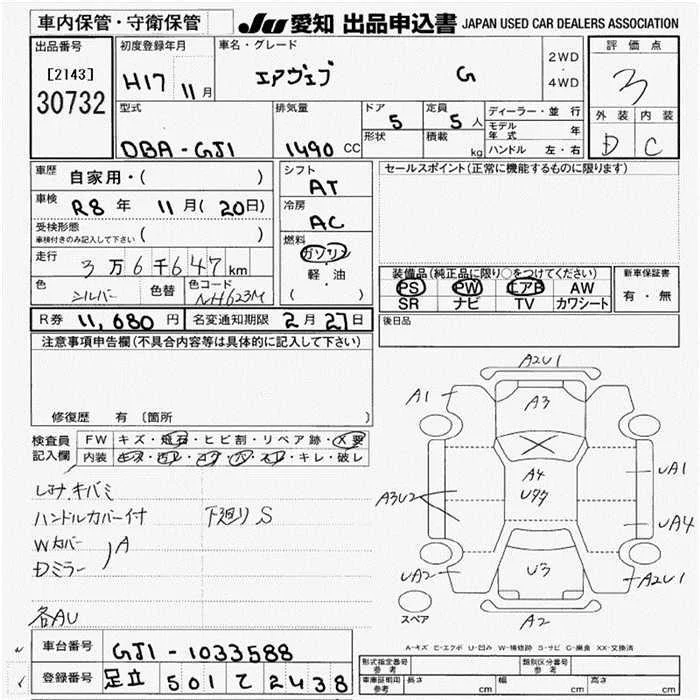 車内保管・守衛保管
JU 愛知 出品申込書 JAPAN USED CAR DEALERS ASSOCIATION
出品番号
[2143]
30732
初度登録年月
H17 11月
車名・グレード
エアウェブ G
2WD
・
4WD
評価点
3
外装 内装
D C
型式
DBA-GJ1
排気量
1490 CC
ドア
5
形状
定員
5人
積載
kg
ディーラー・並行
モデル年式 年
ハンドル 左・右
車歴
自家用・( )
車検
R8年 11月(20日)
受検形態
車検付きのみ記入して下さい ( )
走行
3万6千647km
色
シルバー
色替
色コード
NH623M
シフト
AT
冷房
AC
燃料
ガソリン
軽・油
( )
セールスポイント(正常に機能するものに限ります)
装備品(純正品に限り○をつけてください)
PS PW エアB AW
SR ナビ TV カワシート
新車保証書
有・無
R券 11,680円 名変通知期限 2月27日
後日品
注意事項申告欄(不具合内容等は具体的に記入して下さい)
修復歴 有 〔箇所
検査員
記入欄
FW キズ・飛石・ヒビ割・リペア跡・X要
内装 キズ・汚レ・コゲ・穴・スレ・キレ・破レ
ハンドルカバー付 下廻りS
Wカバー
Dミラー
A
各AU
A2U1
A1
A3
A4
UA1
A3U2
UA4
UA2
U3
A2U1
スペア
A2
A-キズ E-エクボ U-凹み W-補修跡 S-サビ C-腐食 XX-交換済
車台番号
GJ1-1033588
登録番号
足立 501 て 2438
形式指定番号
参考
類別区分番号
参考
車庫証明用
参考
長さ cm 幅 cm 高さ cm